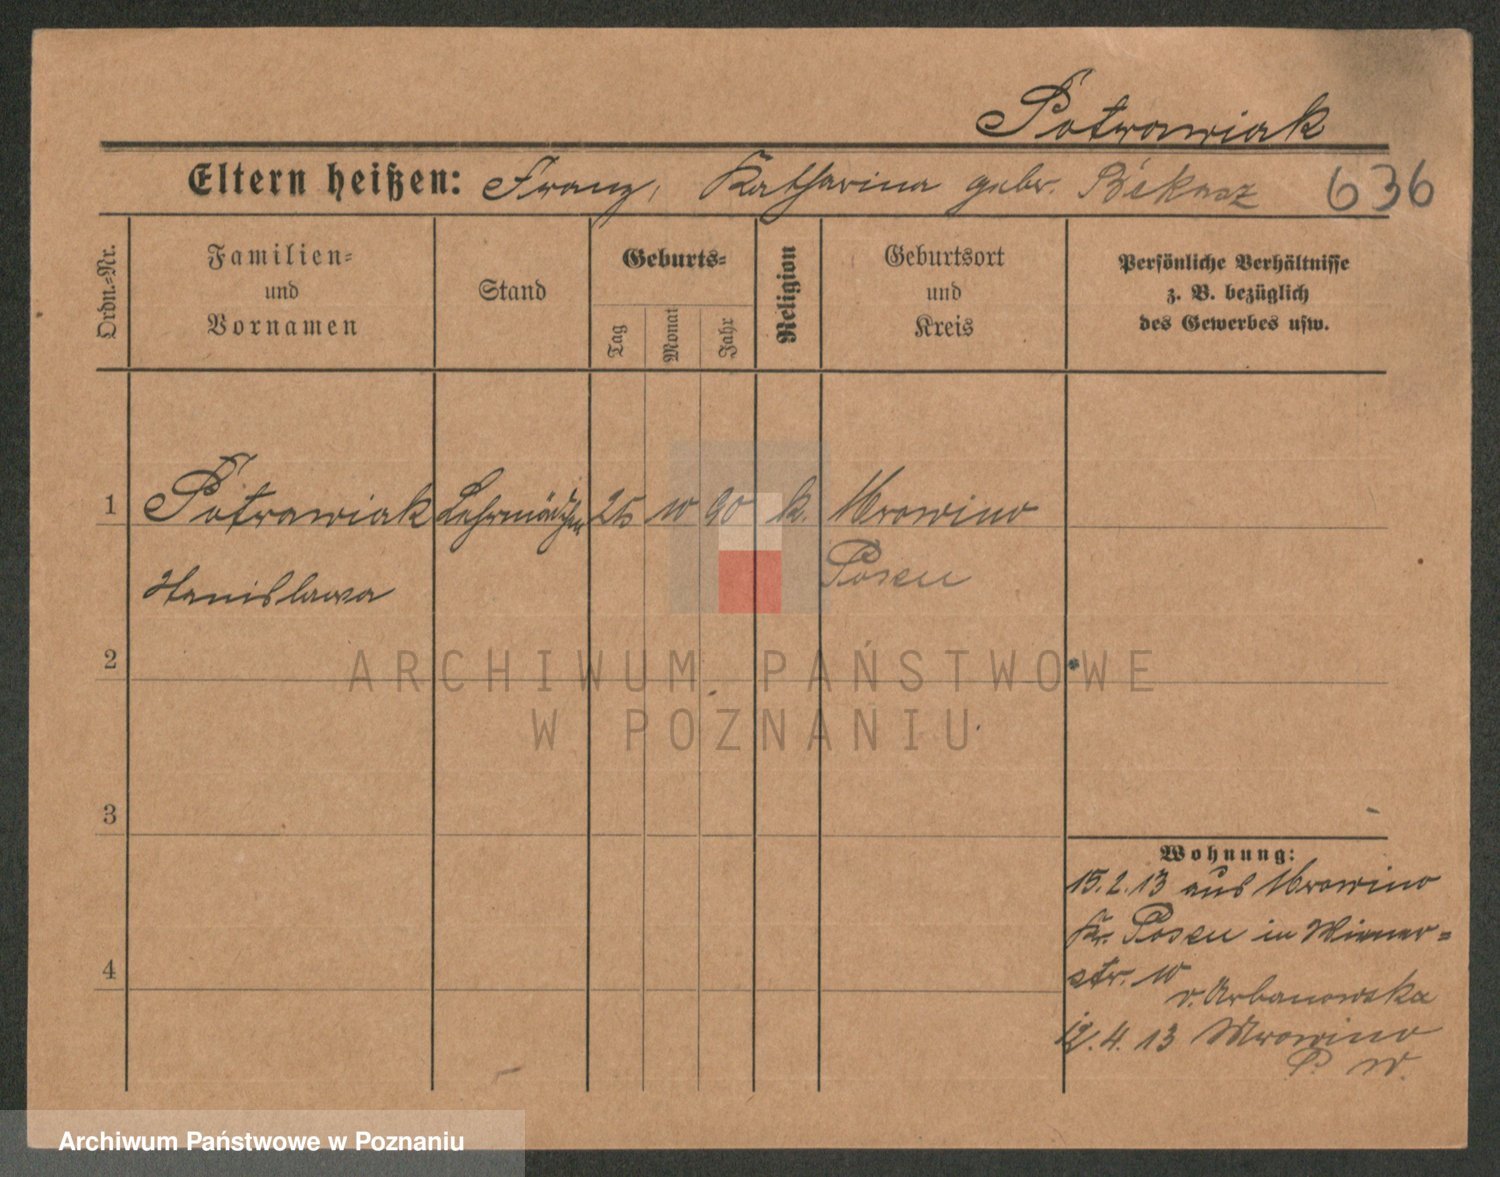 Potrawiak
Eltern heißen: Franz, Katharina gebr. Békasz 636
Ordn.=Nr.
Familien=
und
Vornamen
Stand
Geburts=
Tag
Monat
Jahr
Religion
Geburtsort
und
Kreis
Persönliche Verhältnisse
z. B. bezüglich
des Gewerbes usw.
1 Potrawiak Lehrmädchen 25 10 90 k. Mrowino
Stanislawa Posen
2
3
4
Wohnung:
15.2.13 aus Mrowino
Kr. Posen in Wiener=
str. 10
v. Urbanowska
12.4.13 Mrowino
P. W.
ARCHIWUM PAŃSTWOWE
W POZNANIU
Archiwum Państwowe w Poznaniu